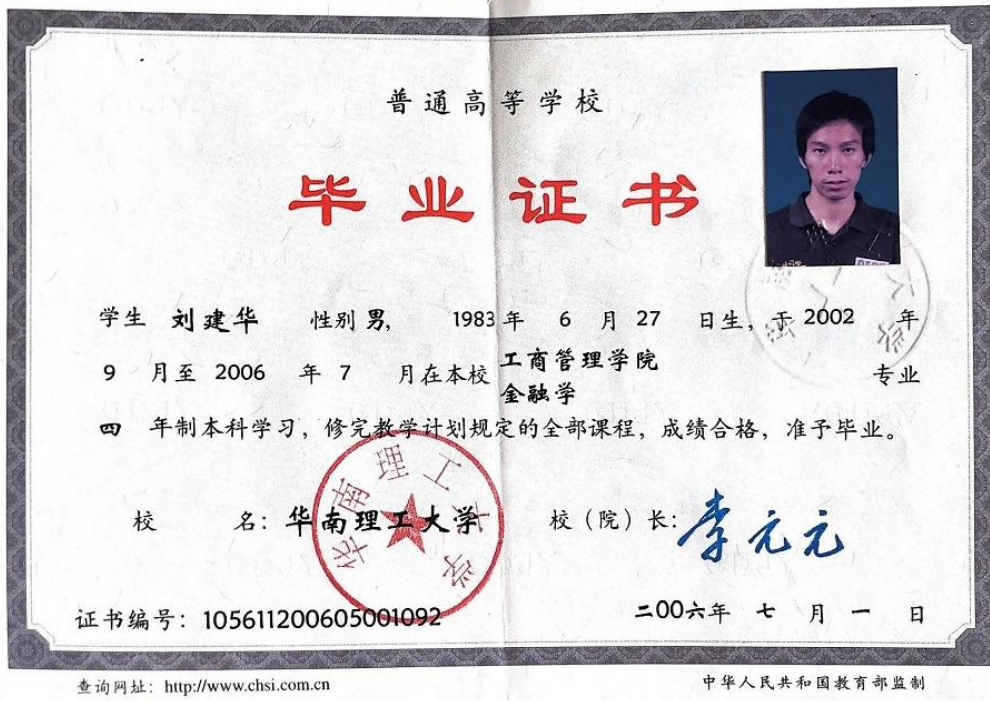 普通高等学校
毕业证书
学生 刘建华 性别 男, 1983 年 6 月 27 日生,于 2002 年
9 月至 2006 年 7 月在本校 工商管理学院 金融学 专业
四 年制本科学习,修完教学计划规定的全部课程,成绩合格,准予毕业。
校 名:华南理工大学 校(院)长:李元元
华南理工大学
证书编号:105611200605001092 二00六年 七 月 一 日
查询网址:http://www.chsi.com.cn 中华人民共和国教育部监制